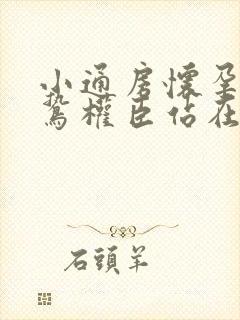 小通房懷孕
鷙權臣佔在
石頭羊